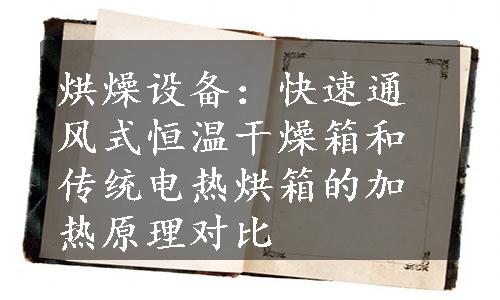 烘燥设备：快速通
风式恒温干燥箱和
传统电热烘箱的加
热原理对比